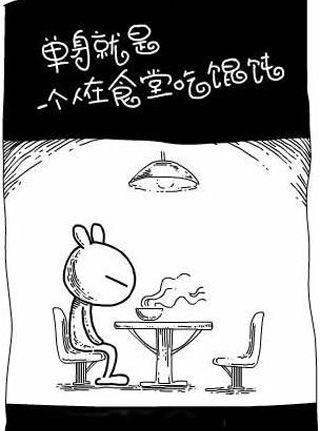 单身就是
一个人在食堂吃馄饨